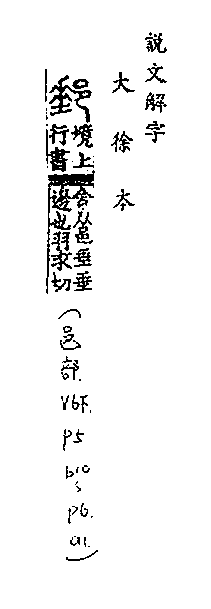 說文解字
大徐本
郵
境上
行書
舍从邑垂垂
邊也羽求切
(邑部. V6下. P5 b10 ~ P6. a1.)